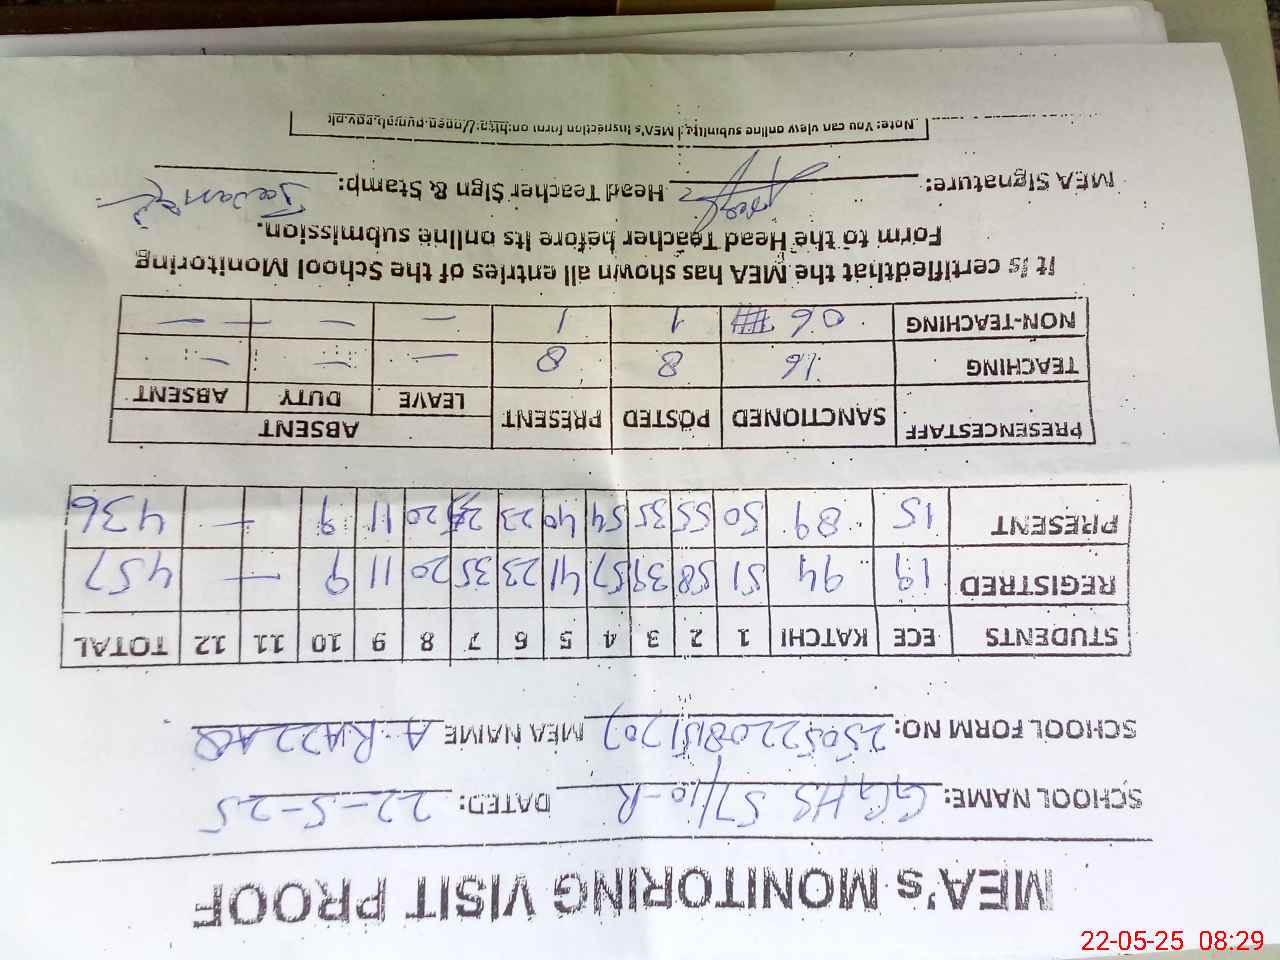 MEA's MONITORING VISIT PROOF
SCHOOL NAME: GGHS 57/10-R DATED: 22-5-25
SCHOOL FORM NO: MEA NAME A. RAZZAQ
STUDENTS ECE KATCHI 1 2 3 4 5 6 7 8 9 10 11 12 TOTAL
REGISTRED 19 94 51 58 39 57 41 23 35 20 11 9 — 457
PRESENT 15 89 50 55 35 54 40 23 20 11 9 — 436
PRESENCESTAFF SANCTIONED POSTED PRESENT ABSENT
LEAVE DUTY ABSENT
TEACHING 16 8 8 — — —
NON-TEACHING 06 1 1 — — —
It is certifiedthat the MEA has shown all entries of the School Monitoring
Form to the Head Teacher before its online submission.
MEA Signature: Head Teacher Sign & Stamp:
Note: You can view online MEA's inspection form on:
22-05-25 08:29